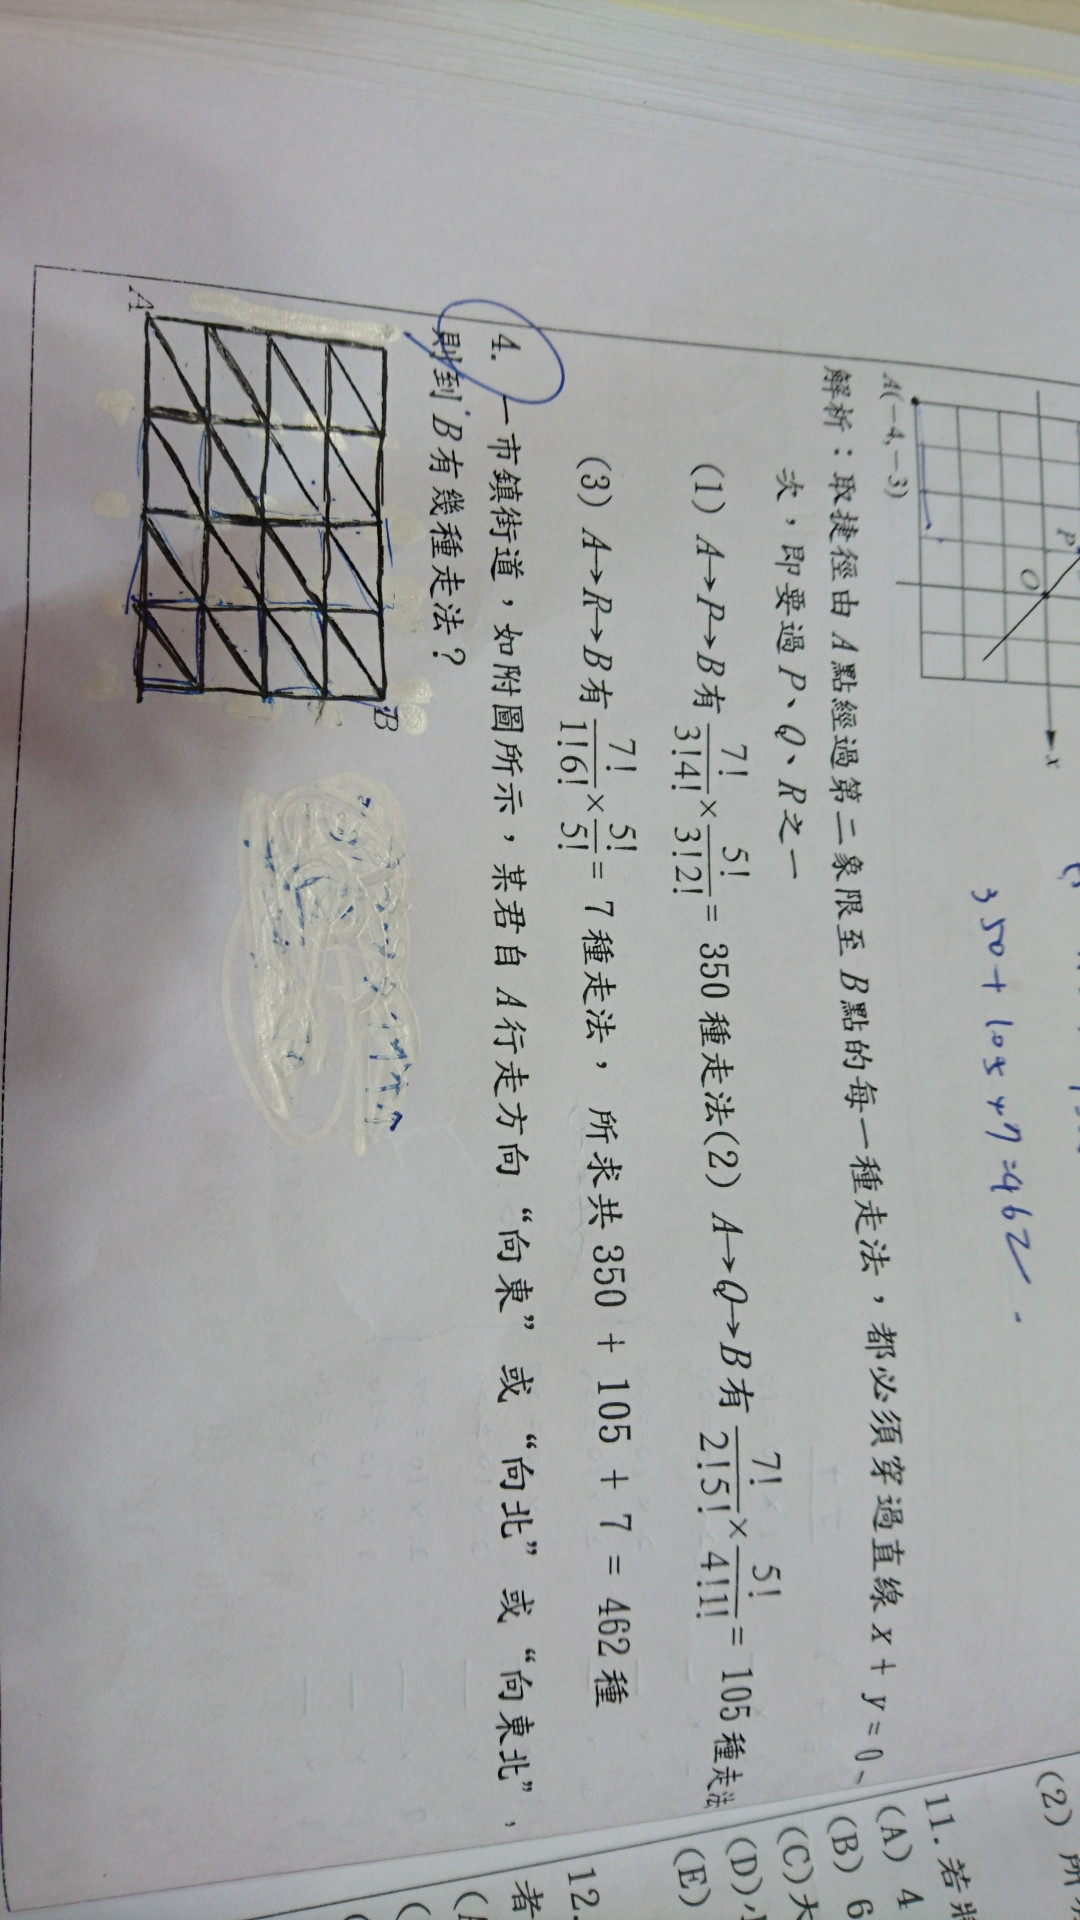 350+105+7=462
P
x
O
A(-4,-3)
解析：取捷徑由 A 點經過第二象限至 B 點的每一種走法，都必須穿過直線 x + y = 0、
次，即要過 P、Q、R 之一
(1) A→P→B 有 7!/3!4! × 5!/3!2! = 350 種走法(2) A→Q→B 有 7!/2!5! × 5!/4!1! = 105 種走法
(3) A→R→B 有 7!/1!6! × 5!/5! = 7 種走法， 所求共 350 + 105 + 7 = 462 種
4. 一市鎮街道，如附圖所示，某君自 A 行走方向 “向東” 或 “向北” 或 “向東北”，
則到 B 有幾種走法？
B
A
(2) 所
11. 若將
(A) 4
(B) 6
(C) 大
(D) 小
(E)
12.
者